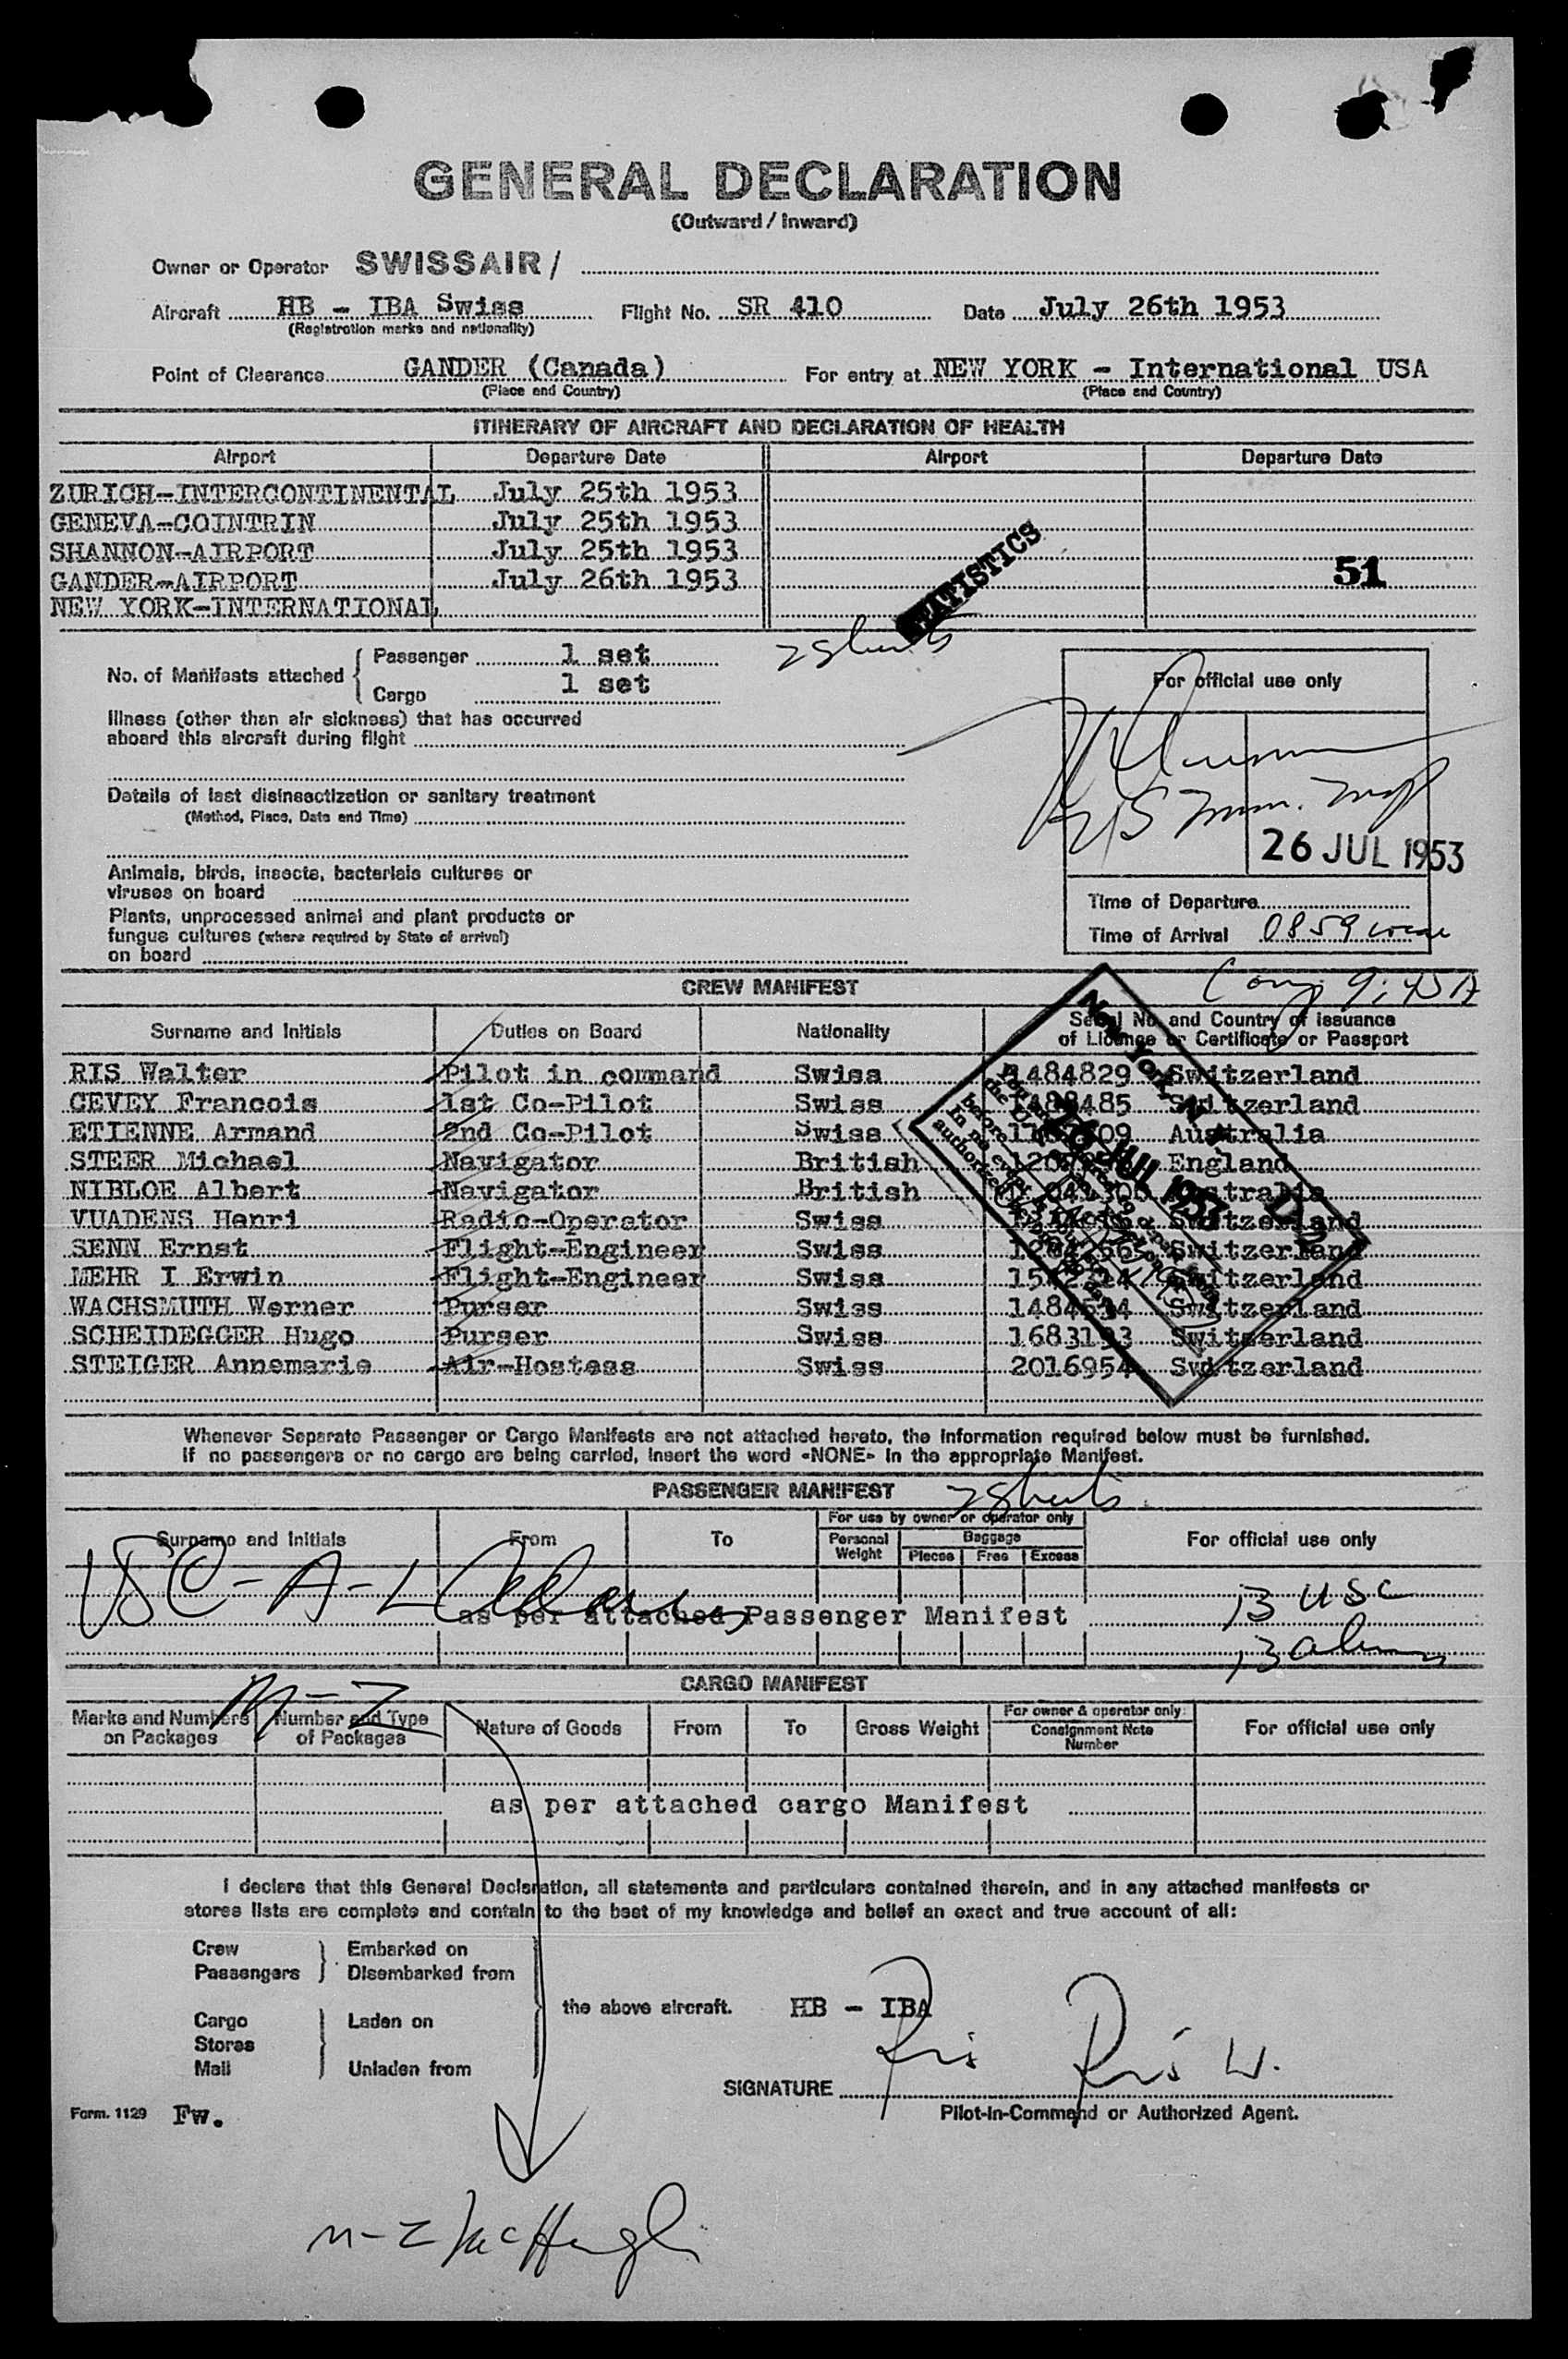 GENERAL DECLARATION
(Outward / Inward)
Owner or Operator SWISSAIR /
Aircraft HB - IBA Swiss Flight No. SR 410 Date July 26th 1953
(Registration marks and nationality)
Point of Clearance GANDER (Canada) For entry at NEW YORK - International USA
(Place and Country) (Place and Country)
ITINERARY OF AIRCRAFT AND DECLARATION OF HEALTH
Airport Departure Date Airport Departure Date
ZURICH-INTERCONTINENTAL July 25th 1953
GENEVA-COINTRIN July 25th 1953
SHANNON-AIRPORT July 25th 1953
STATISTICS
GANDER-AIRPORT July 26th 1953 51
NEW YORK-INTERNATIONAL
2 sheets
No. of Manifests attached
Passenger 1 set
Cargo 1 set
For official use only
Illness (other than air sickness) that has occurred
aboard this aircraft during flight
Details of last disinsectization or sanitary treatment
(Method, Place, Date and Time)
26 JUL 1953
Animals, birds, insects, bacterials cultures or
viruses on board
Time of Departure
Plants, unprocessed animal and plant products or
fungus cultures (where required by State of arrival)
on board
Time of Arrival 0859
9:45A
CREW MANIFEST
Surname and Initials Duties on Board Nationality Serial No. and Country of issuance
of Licence or Certificate or Passport
RIS Walter Pilot in command Swiss 1484829 Switzerland
CEVEY Francois 1st Co-Pilot Swiss Switzerland
ETIENNE Armand 2nd Co-Pilot Swiss Australia
STEER Michael Navigator British England
NIBLOE Albert Navigator British Australia
VUADENS Henri Radio-Operator Swiss Switzerland
SENN Ernst Flight-Engineer Swiss Switzerland
MEHR I Erwin Flight-Engineer Swiss Switzerland
WACHSMUTH Werner Purser Swiss Switzerland
SCHEIDEGGER Hugo Purser Swiss Switzerland
STEIGER Annemarie Air-Hostess Swiss 2016954 Switzerland
26 JUL 1953
Whenever Separate Passenger or Cargo Manifests are not attached hereto, the information required below must be furnished.
If no passengers or no cargo are being carried, insert the word «NONE» in the appropriate Manifest.
PASSENGER MANIFEST 2 sheets
Surname and Initials From To For use by owner or operator only For official use only
Personal Weight Baggage
Pieces Free Excess
USC - A-L
13 USC
as per attached Passenger Manifest
13 aliens
CARGO MANIFEST
M-Z
Marks and Numbers on Packages Number and Type of Packages Nature of Goods From To Gross Weight For owner & operator only: Consignment Note Number For official use only
as per attached cargo Manifest
I declare that this General Declaration, all statements and particulars contained therein, and in any attached manifests or
stores lists are complete and contain to the best of my knowledge and belief an exact and true account of all:
Crew Embarked on
Passengers Disembarked from
the above aircraft. HB - IBA
Cargo Laden on
Stores
Mail Unladen from
Ris Ris W.
SIGNATURE
Pilot-in-Command or Authorized Agent.
Form. 1129 Fw.
M-Z